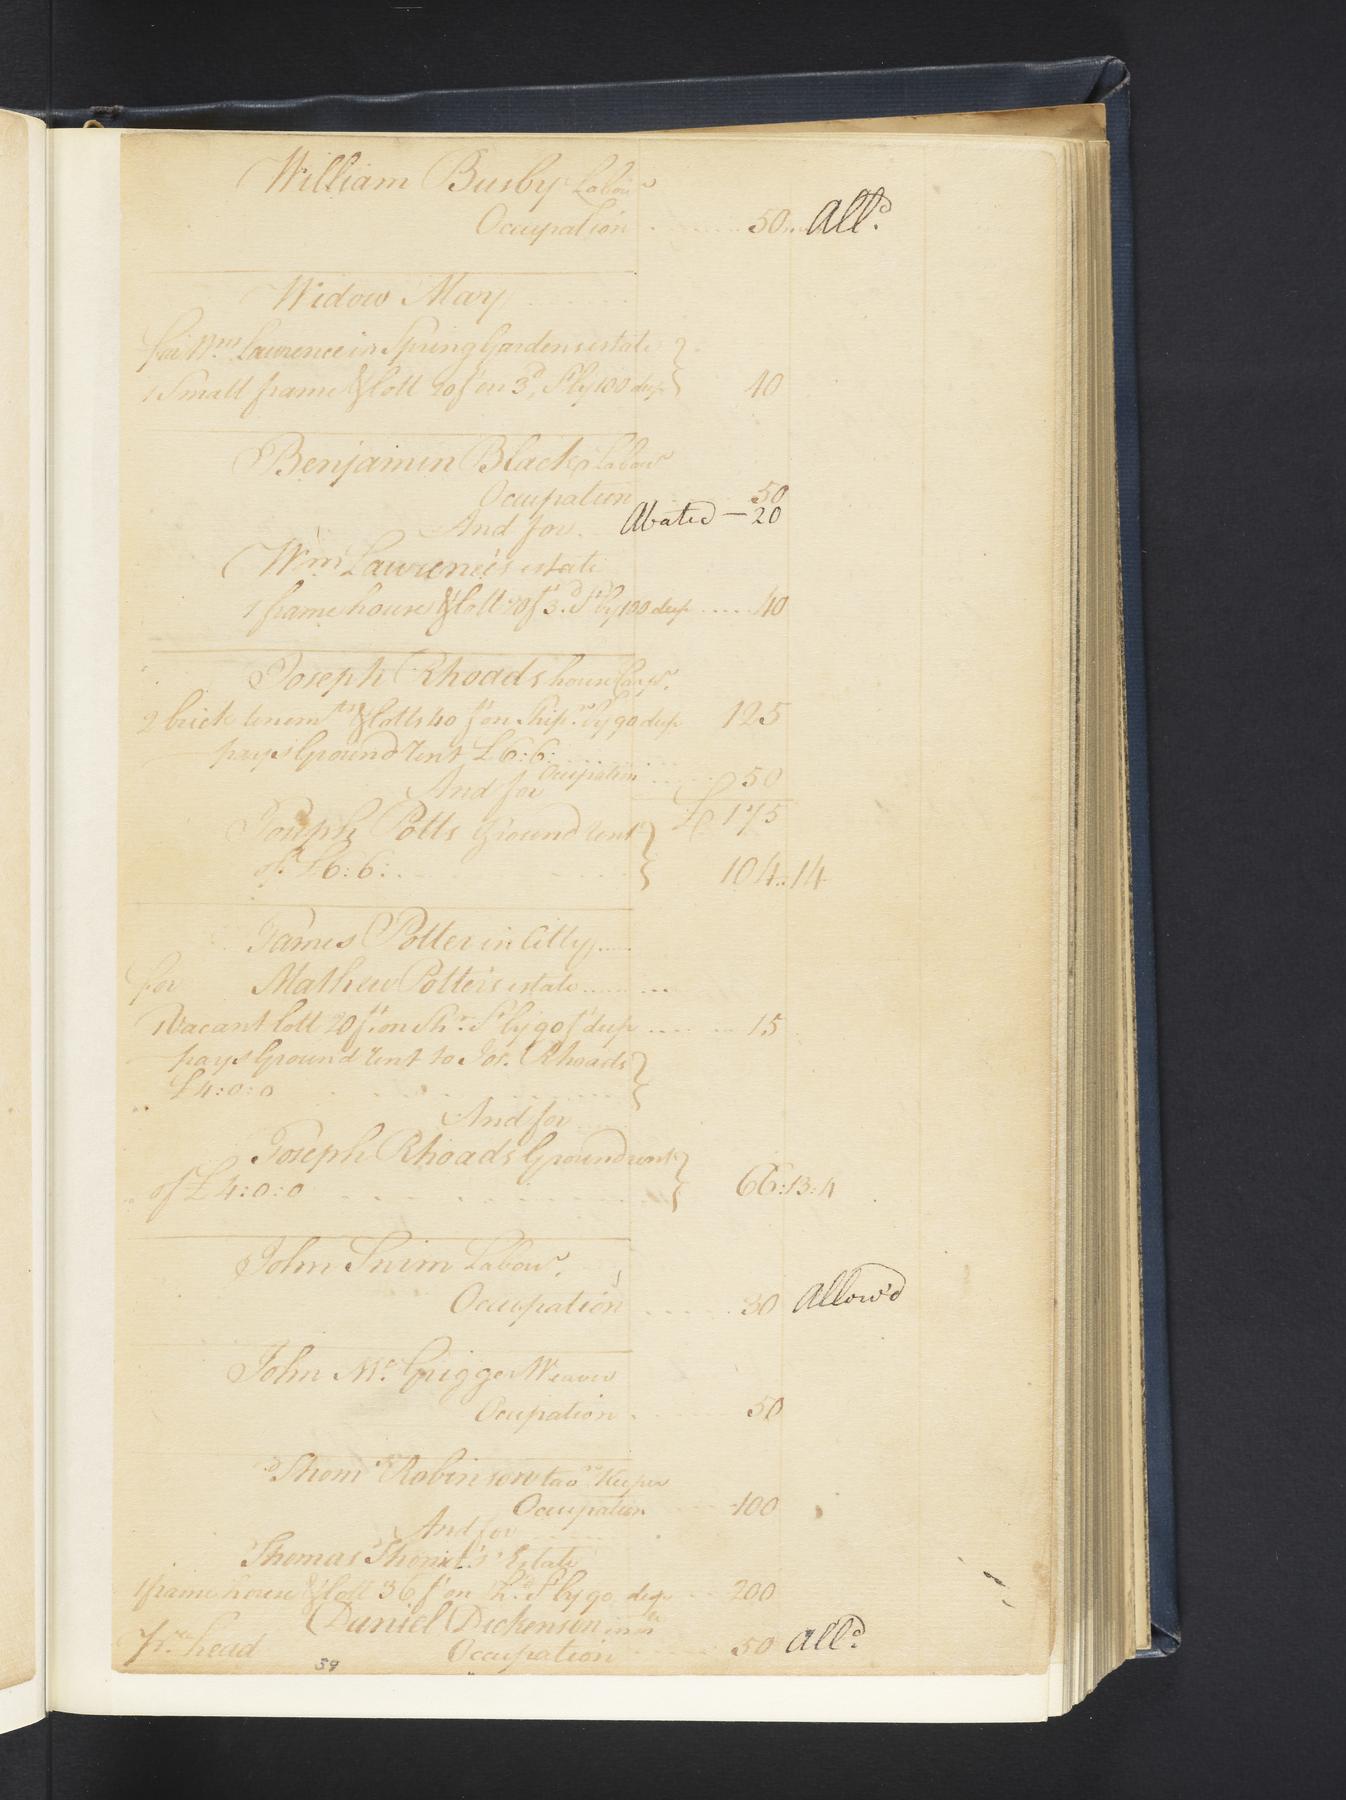 William Busby Labour
Occupation ........ 50... All.d
Widow Mary
for Wm. Lawrence in Spring Gardens estate
1 Small frame & lott 20 f on 3d. St by 100 deep } 40
Benjamin Black Labour
Occupation 50
And for Abated — 20
Wm. Lawrence's estate
1 frame house & lott 20 f 3.d St by 100 deep ..... 40
Joseph Rhoads house Carpr.
2 brick tenemts & lotts 40 ft on Ship.n by 90 deep 125
pays Ground rent £6:6:
Occupation ..... 50
And for £175
Joseph Potts Ground rent
of £6:6: } 104..14
James Potter in Citty .....
for Mathew Potter's estate ..........
1 Vacant lott 20 ft. on Shn. St by 90 f deep ....... 15
pays Ground rent to Jos. Rhoads }
£4:0:0
And for
Joseph Rhoads Ground rent }
of £4:0:0 66:13:4
John Snim Labour.
Occupation ...... 30 Allow'd
John Mc. Grigger Weaver
Ocupation . 50
Thoms Robinson tavn Keeper
Occupation 100
And for
Thomas Shonit's Estate
1 frame house & lott 36 ft on 2.d St by 90 deep 200
Daniel Dickenson inn
Pr. head Occupation 50 All.d
59